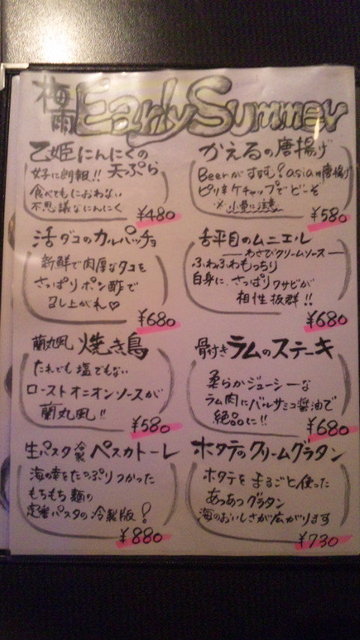 梅雨 Early Summer
乙姫にんにくの天ぷら
女子に朗報!!
食べてもにおわない
不思議なにんにく
¥480
かえるの唐揚げ
Beerがすすむ Asiaの唐揚げ
ピリ辛ケチャップでどーぞ
¥580
活ダコのカルパッチョ
新鮮で肉厚なタコを
さっぱりポン酢で
召し上がれ♡
¥680
舌平目のムニエル
―わさびクリームソース―
ふわふわもっちり
白身に、さっぱりワサビが
相性抜群!!
¥680
蘭丸風 焼き鳥
たれでも塩でもない
ローストオニオンソースが
蘭丸風!!
¥580
骨付きラムのステーキ
柔らかジューシーな
ラム肉にバルサミコ醤油で
絶品に!!
¥680
生パスタ 冷製 ペスカトーレ
海の幸をたっぷりつかった
もちもち麺の
定番パスタの冷製版!
¥880
ホタテのクリームグラタン
ホタテをまるごと使った
あつあつグラタン
海のおいしさが広がります
¥730